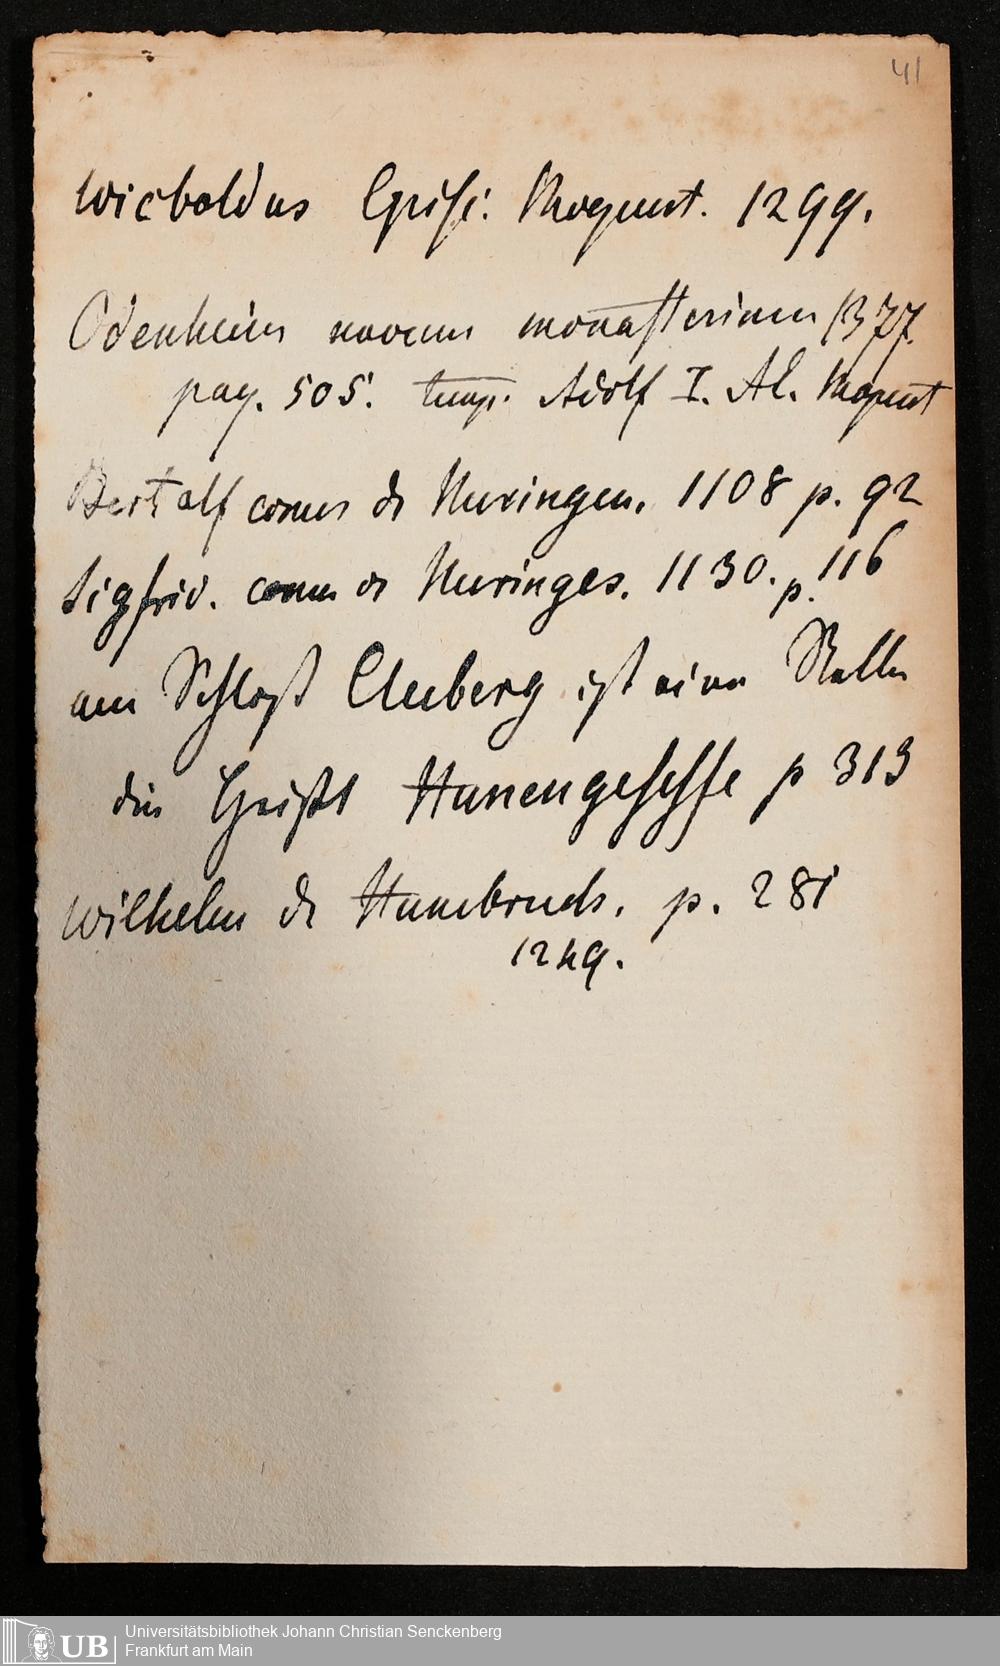 41
Wicboldus Episc. Mogunt. 1299.
Odenheim novum monasterium 1377.
pag. 505. temp. Adolf I. Al. Mogunt
Bertolf comes de Nuringen. 1108 p. 92
Sigfrid. comes de Nuringes. 1130. p. 116
am Schloß Cleeberg ist eine Stelle
die heißt Hanengeschsse p 313
Wilhelm de Hambruch. p. 281
1249.
UB Universitätsbibliothek Johann Christian Senckenberg
Frankfurt am Main